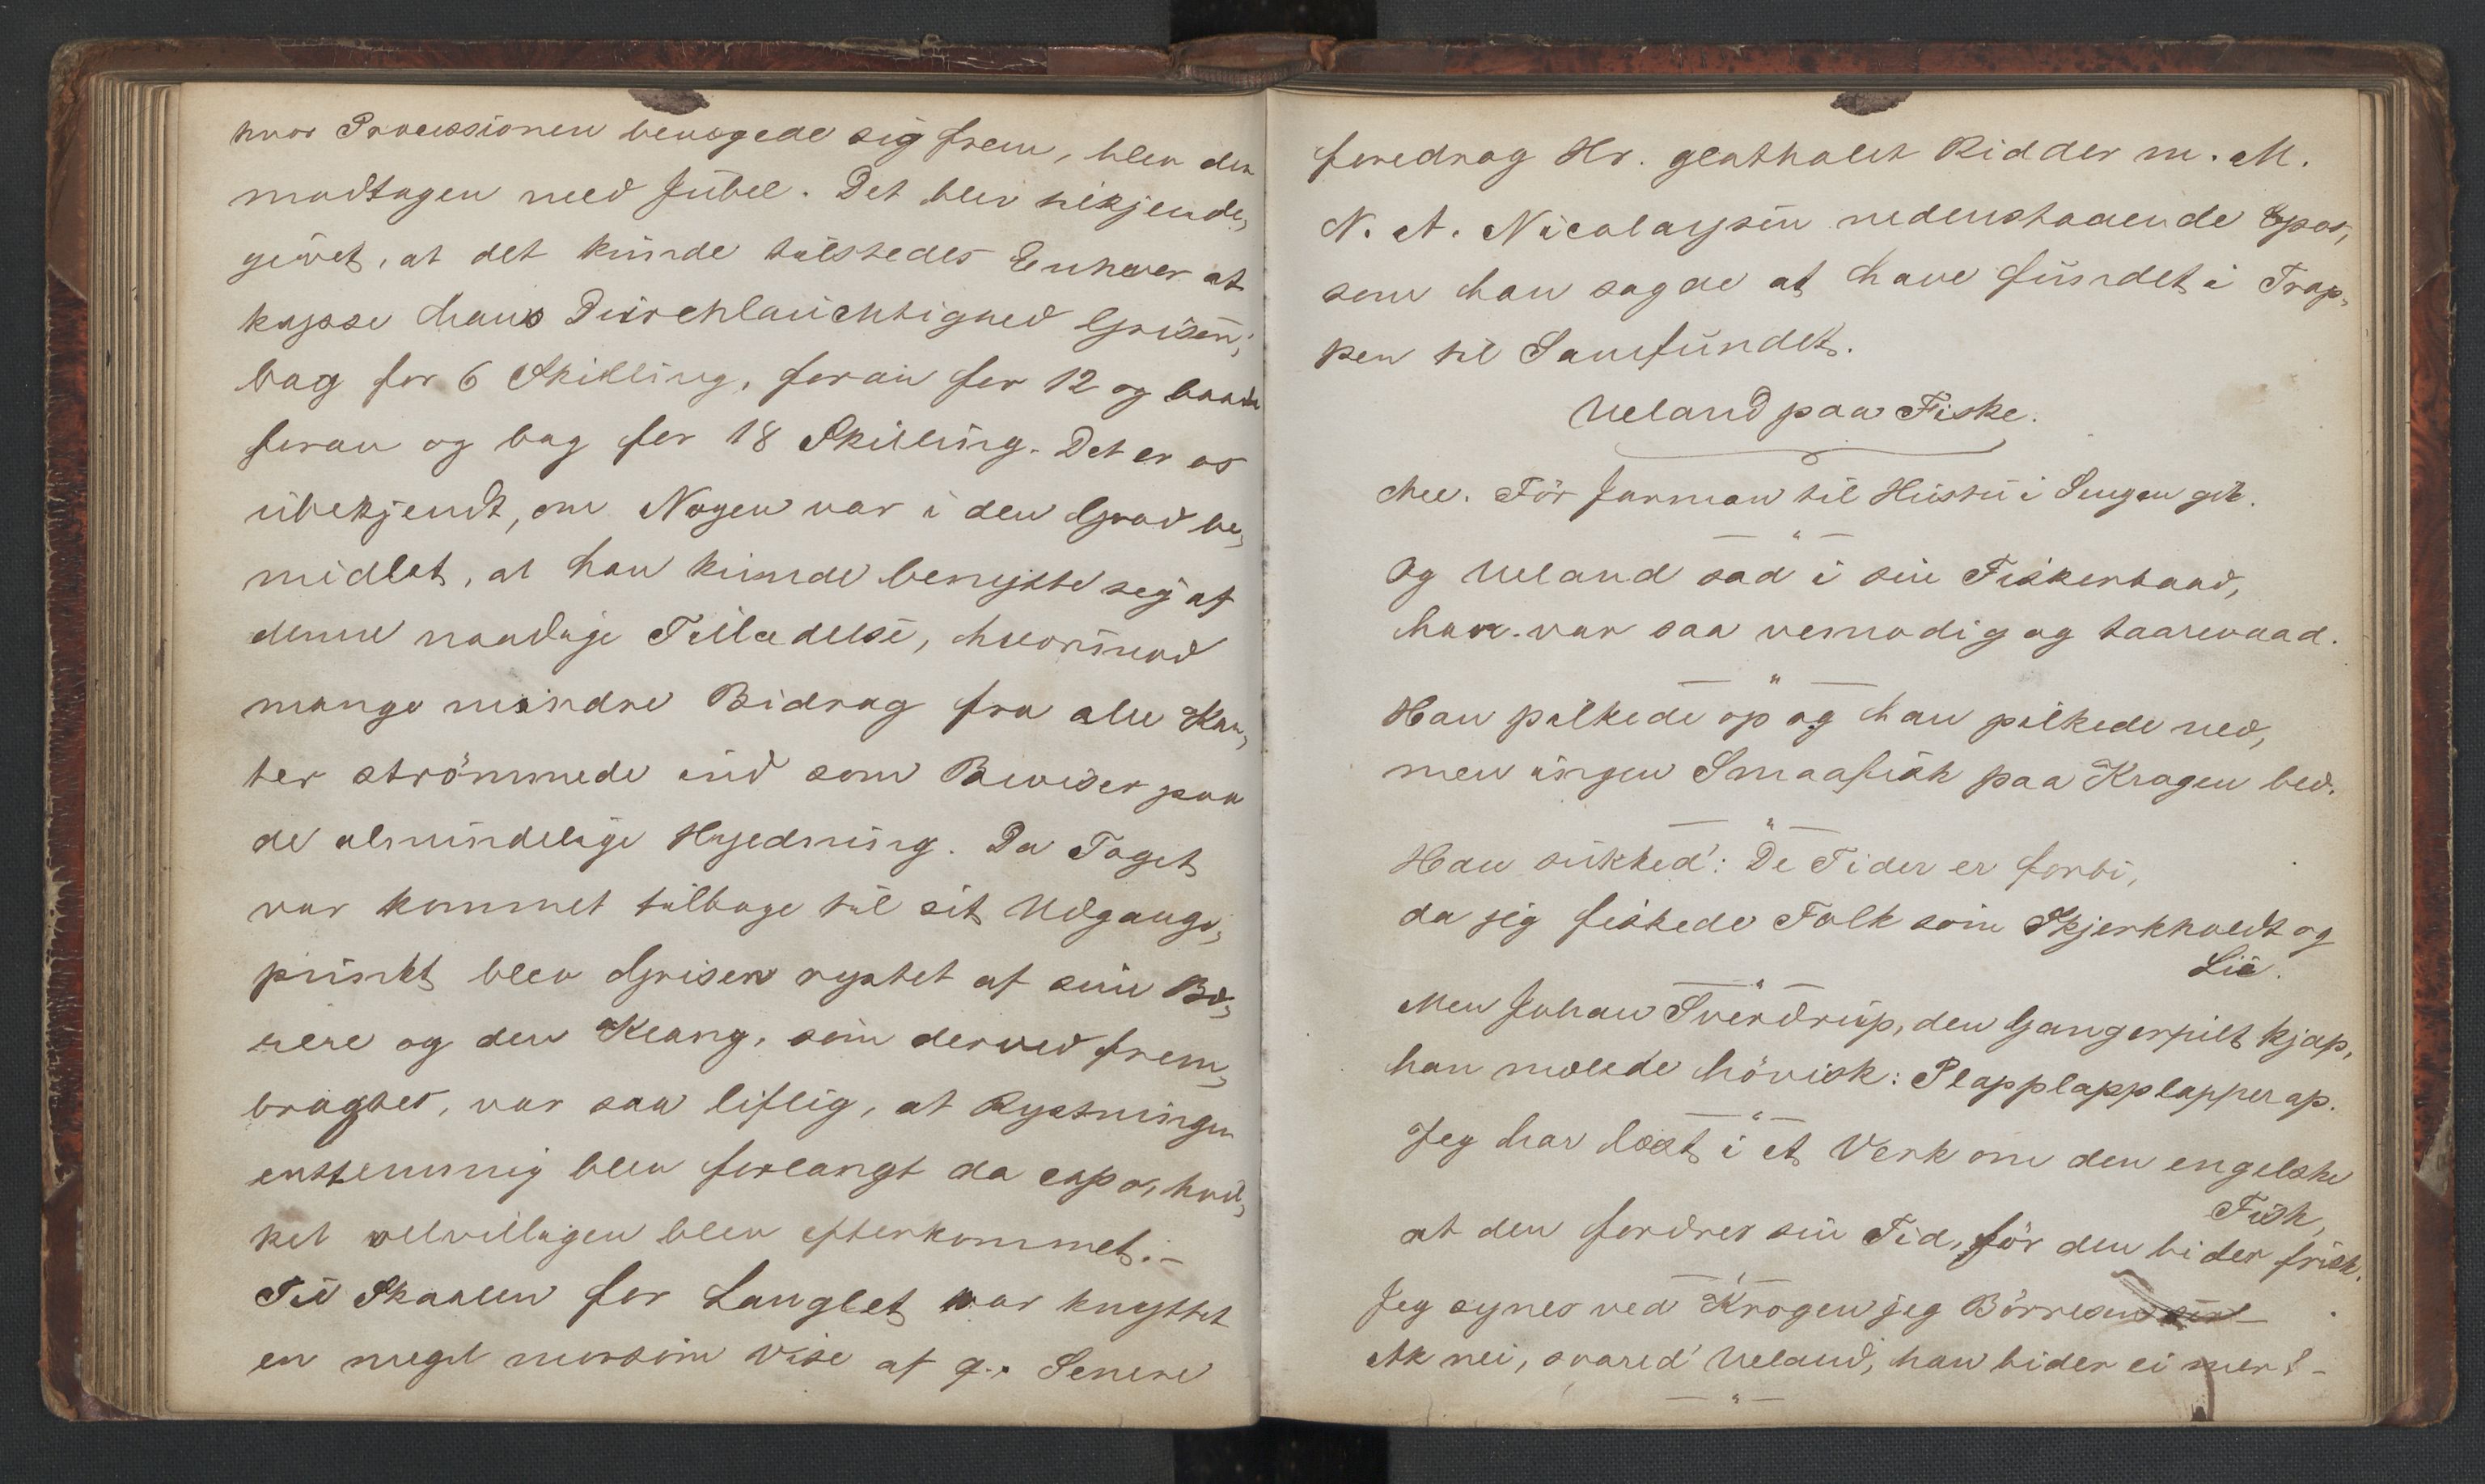 hvor Processionen bevægede sig frem, blev den
modtagen med Jubel. Det blev tilkjende-
givet, at det kunde tilstedes Enhver at
kysse hans Durchlauchtighed Grisen;
bag for 6 Skilling, foran for 12 og baade
foran og bag for 18 Skilling. Det er os
ubekjendt, om Nogen var i den Grad be-
midlet, at han kunde benytte sig af
denne naadige Tilladelse, hvorimod
mange mindre Bidrag fra alle Kan-
ter strömmede ind som Beviser paa
de almindelige Hyldning. Da Toget
var kommet tilbage til sit Udgangs-
punkt blev Grisen rystet af sine Bæ-
rere og den Klang, som derved frem-
bragtes, var saa liflig, at Rystningen
enstemmig blev forlangt da capo, hvil-
ket velvilligen blev efterkommet. –
Til Skaalen for Langlet var knyttet
en meget morsom Vise af q.. Senere
foredrog Hr. glathalet Ridder m. M.
N. A. Nicolaysen nedenstaaende Epos,
som han sagde at have fundet i Trap-
pen til Samfundet.
Ueland paa Fiske.
Mel. För Jarman til Hustu i Sengen gik.
Og Ueland sad i sin Fiskerbaad,
han var saa vemodig og taarevaad.
Han pilkede op og han pilkede ned,
men ingen Smaafisk paa Krogen bed.
Han sukked': De Tider er forbi,
da jeg fiskede Folk som Skjerkholdt og
Lie.
Men Johan Sverdrup, den Gangerpilt kjap,
han mælede hövisk: Plapplapplapperap.
Jeg har læst i et Verk om den engelske
Fisk,
at den fordrer sin Tid, för den bider frisk.
Jeg synes ved Krogen jeg Börresen ser –
Ak nei, svared' Ueland, han bider ei mer! –